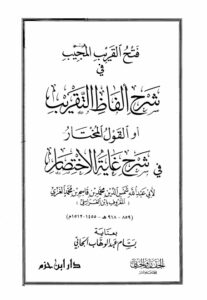 فتح القريب المجيب
في
شرح ألفاظ التقريب
أو القول المختار
في شرح غاية الاختصار
لأبي عبد الله شمس الدين محمد بن قاسم بن محمد الغزي
(٨٥٩ - ٩١٨ هـ = ١٤٥٥ - ١٥١٢م)
بعناية
بسام عبد الوهاب الجابي
دار ابن حزم